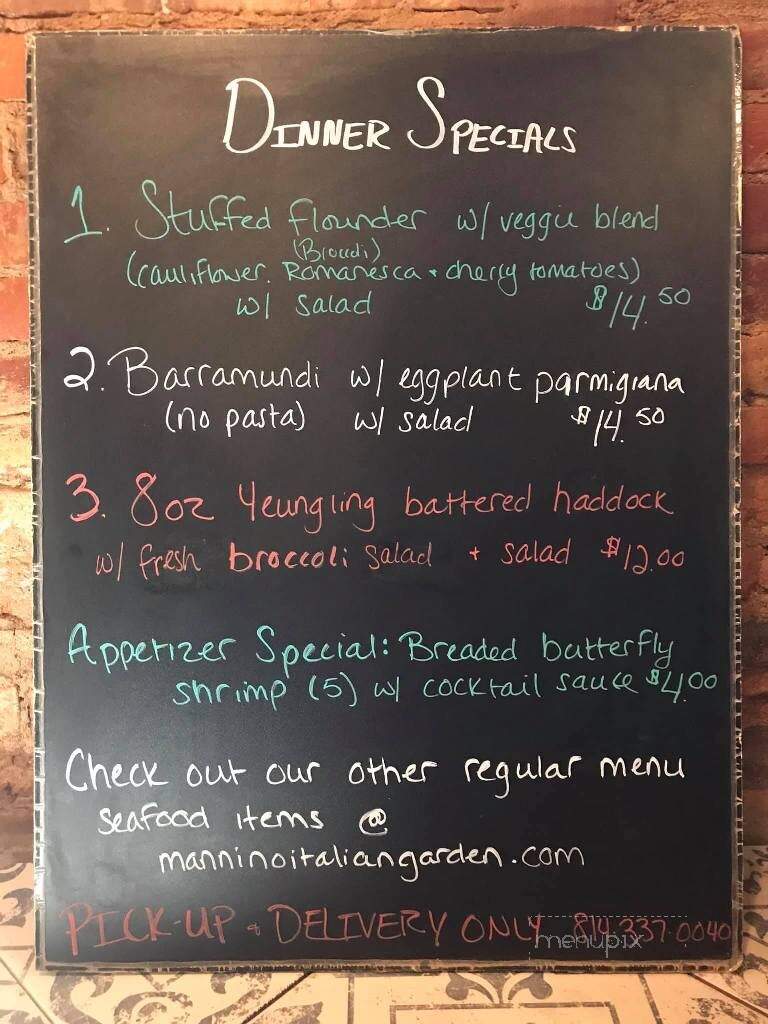 DINNER SPECIALS
1. Stuffed flounder w/ veggie blend
(Broccli)
(cauliflower, Romanesca + cherry tomatoes)
w/ salad $14.50
2. Barramundi w/ eggplant parmigiana
(no pasta) w/ salad $14.50
3. 8oz Yeungling battered haddock
w/ fresh broccoli salad + salad $12.00
Appetizer Special: Breaded butterfly
shrimp (5) w/ cocktail sauce $4.00
Check out our other regular menu
seafood items @
manninoitaliangarden.com
PICK-UP + DELIVERY ONLY 814.337.0040
menupix